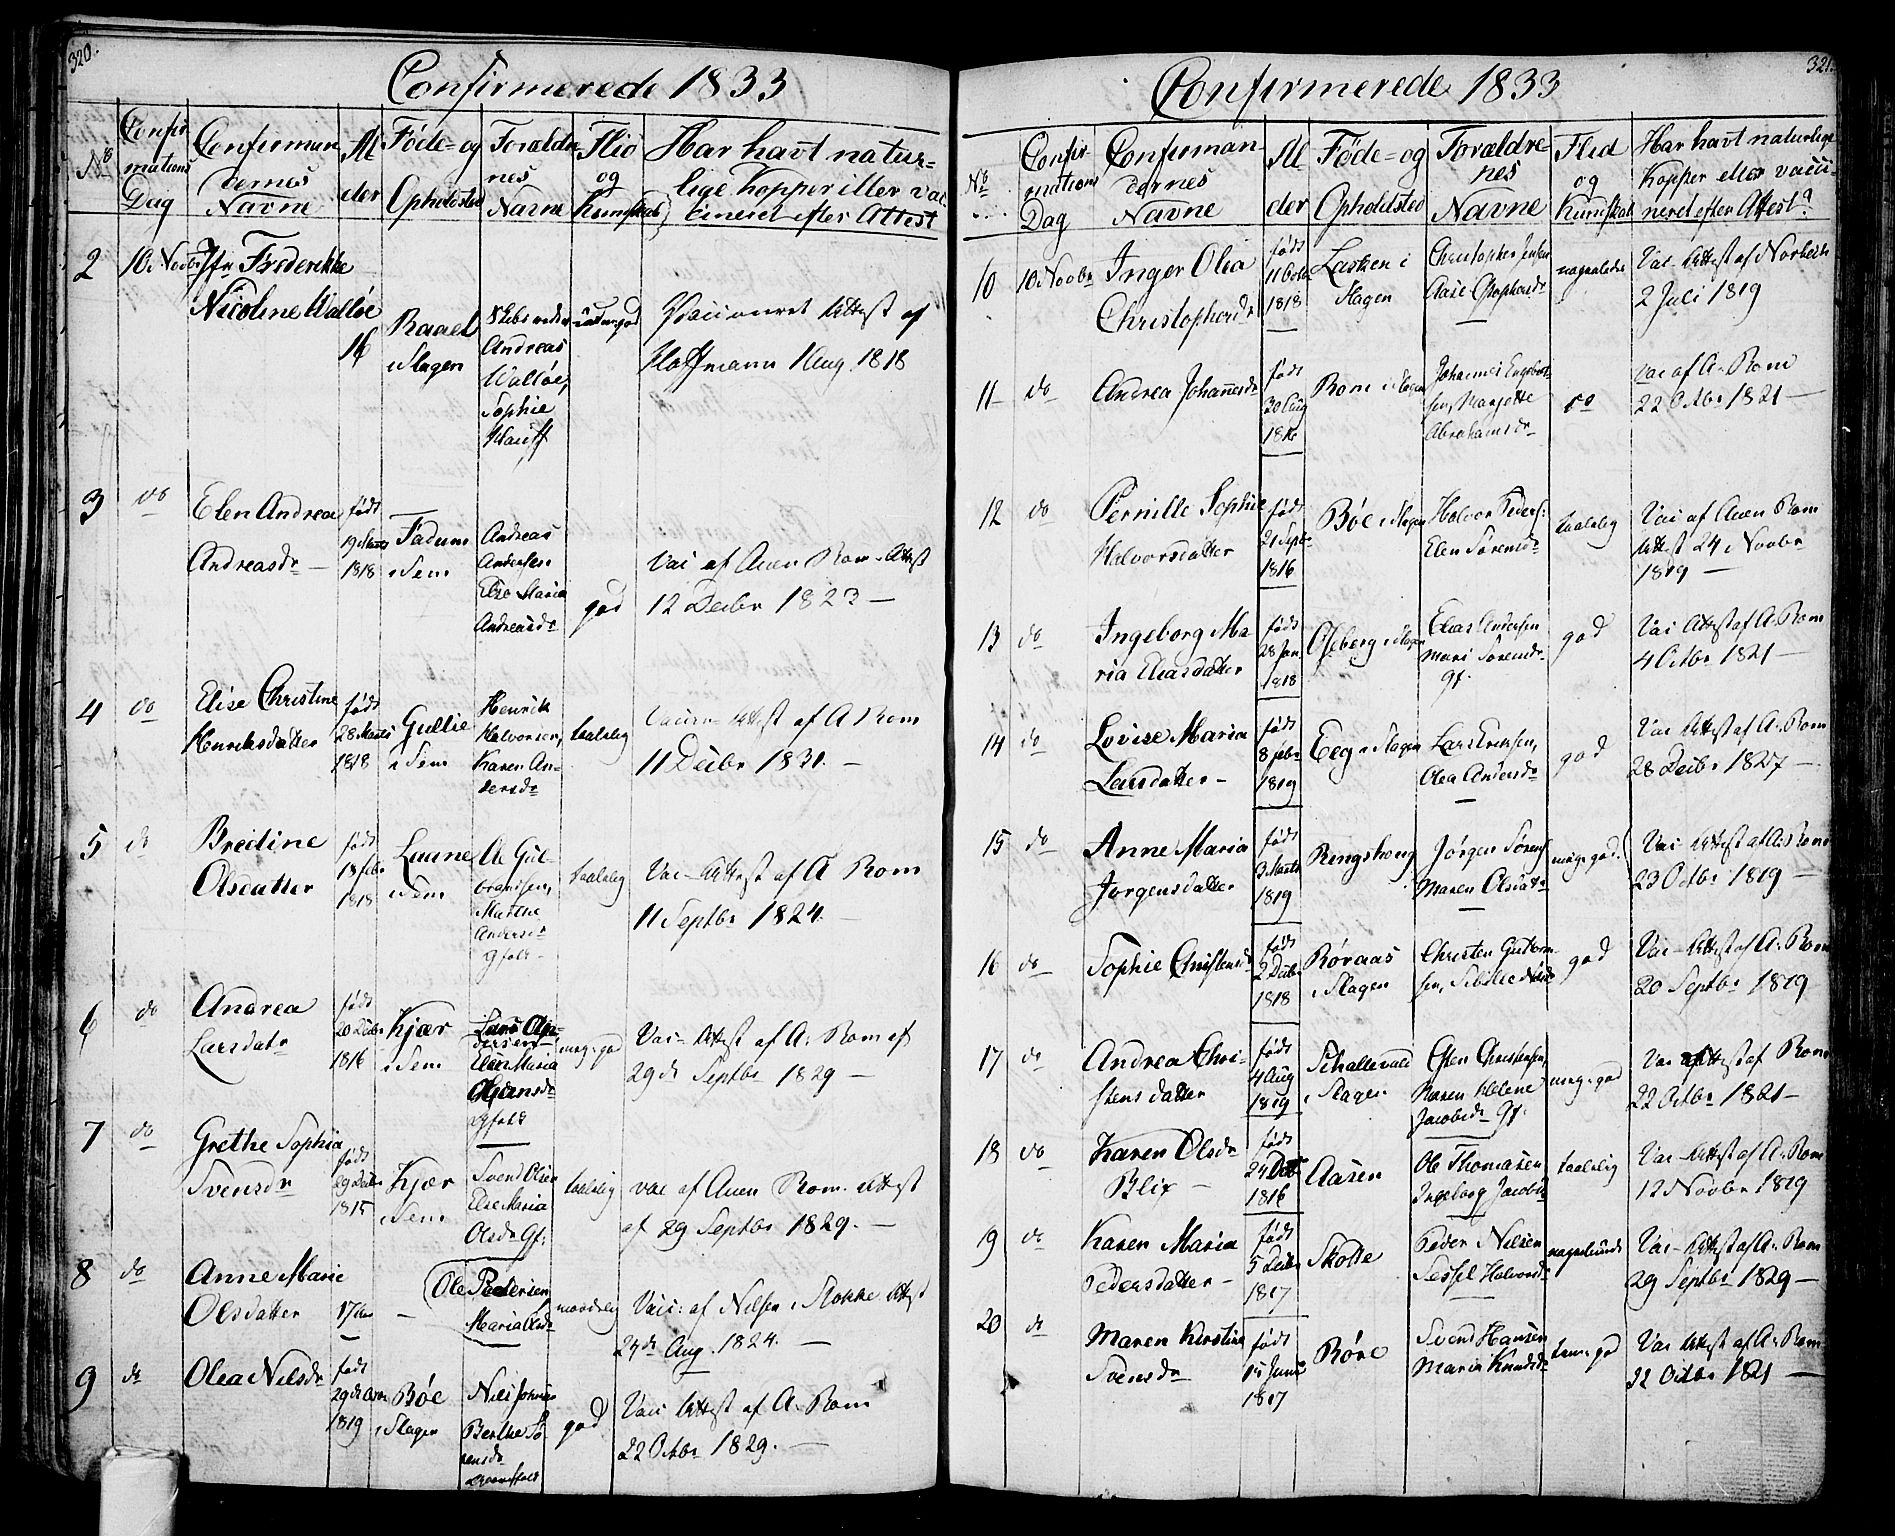 320.
Confirmerede 1833
No
Confir
mations
Dag
Confirman
dernes
Navne
Al
der
Føde- og
Opholdsted
Forældre
nes
Navne
Flid
og
Kundskab
Har havt natur-
lige Kopper eller vac
cineret efter Attest
2
10 Novbr
Jfr Frederikke
Nicoline Walløe
16
Raael
i Slagen
Andreas
Walløe,
Sophie
Hauff
Vaccineret Attest af
Hoffmann 1 Aug 1818
3
do
Elen Andrea
Andreasdr
født
19 Marts
1818
Fadum
i Sem
Andreas
Andersen
Else Maria
Andreasdr
god
Vac af Auen Rom Attest
12 Decbr 1823
4
do
Elise Christine
Henriksdatter
født
28 Marts
1818
Gullie
i Sem
Henrik
Halvorsen,
Karen An-
dersdr
taalelig
Vaccin Attest af A Rom
11 Decbr 1831.
5
do
Bredine
Olsdatter
født
13 febr
1818
Laune
i Sem
Ole Gul-
brandsen,
Marthe
Andersdr
Gfolk
taalelig
Vac- Attest af A Rom
11 Septbr 1824.
6
do
Andrea
Larsdatr
født
20 Decbr
1816
Kjær
i Sem
Lars An-
dersen
Elen Maria
Hansdr
Gfolk
meg: god
Vac- Attest af A: Rom af
29de Septbr 1829
7
do
Grethe Sophia
Svensdr
født
29 Decbr
1815
Kjær
i Sem
Svend Olsen
Else Maria
Olsdr Gf:
taalelig
vac af Auen Rom. Attest
af 29 Septbr 1829.
8
do
Anne Marie
Olsdatter
17 Aar
Ole Pedersen
Maria Olsdr
maadelig
Vacc: af Nilsen i Stokke Attest
24de Aug. 1824.
9
do
Olea Nilsdr
født
1819
Bøe
i Slagen
Nils Johnsen
Berthe Sø
rensdr
god
Vacc Attest af A. Rom
22 Octbr 1829.
321.
Confirmerede 1833
No
Confir
mations
Dag
Confirman
dernes
Navne
Al
der
Føde- og
Opholdsted
Forældre
nes
Navne
Flid
og
Kundskab
Har havt naturlige
Kopper eller vacci-
neret efter Attest?
10
10 Novbr
Inger Olea
Christophersdr
født
11 Octbr
1818
i
Slagen
Christopher Jensen
Vac- Attest af
2 Juli 1819
11
do
Andrea Johannesdr
født
30 Aug
1816
Rom i Slagen
Johannes Engebret-
sen, Margette
Abrahamsdr
do
Vac af A. Rom
22 Octbr 1821
12
do
Pernille Sophie
Halvorsdatter
født
21 Septbr
1816
Bøe i Slagen
Halvor Peders:
Elen Sørensdr
taalelig
Vac af Auen Rom
Attest 24 Novbr
1819
13
do
Ingeborg Ma
ria Eliasdatter
født
28 Jan
1818
i Slagen
Elias Andersen
Mari Sørensdr
Gf.
god
Vac Attest af A. Rom
4 Octbr 1821
14
do
Lovise Maria
Larsdatter
født
8 febr
1819
Eeg i Slagen
Lars Eriksen,
Olea Andersdr
god
Vac Attest af A. Rom
28 Decbr 1827
15
do
Anne Maria
Jørgensdatter
født
3 Marts
1819
Ringshoug
Jørgen Sørens
Maren Olsdatr
meget god.
Vac Attest af A: Rom
23 Octbr 1819
16
do
Sophie Christensdr
født
2 Decbr
1818
Røraas
i Slagen
Christen Guttorm
sen, Sibille
god
Vac- Attest af A: Rom
20 Septbr 1819
17
do
Andrea Chri-
stensdatter
født
4 Aug
1819
Schallevald
i Slagen
Christensen,
Maren Helene
Jacobsdr Gf:
meg: god
Vac Attest af Rom
22 Octbr 1821
18
do
Karen Olsdr
Blix
født
24
1816
Aasen
Ole Thomasen
Ingeborg Jacobsdr
taalelig
Vac- Attest af A: Rom
12 Novbr 1819
19
do
Karen Maria
Pedersdatter
født
5 Decbr
1817
Skotte
Peder Nilsen
Sessel Halvorsdr
Vac- Attest af A: Rom
29 Septbr 1829
20
do
Maren Kirstine
Svensdr
født
15 Juni
1817
Røre
Svend Hansen
Maria Knudsdr
Vac Attest af A: Rom
22 Octbr 1821